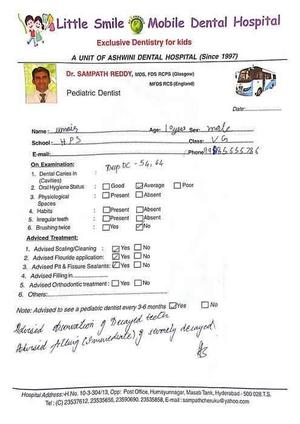 Little Smile Mobile Dental Hospital
Exclusive Dentistry for kids
A UNIT OF ASHWINI DENTAL HOSPITAL (Since 1997)
Dr. SAMPATH REDDY, MDS, FDS RCPS (Glasgow)
MFDS RCS (England)
Pediatric Dentist
Date:
Name: Age: Sex: male
School: HPS Class:
E-mail: Phone:
On Examination:
1. Dental Caries in (Cavities) Deep DC - 54, 64
2. Oral Hygiene Status : Good Average Poor
3. Physiological Spaces : Present Absent
4. Habits : Present Absent
5. Irregular teeth : Present Absent
6. Brushing twice : Yes No
Adviced Treatment:
1. Advised Scaling/Cleaning : Yes No
2. Advised Flouride application: Yes No
3. Advised Pit & Fissure Sealants: Yes No
4. Advised Filling in
5. Advised Orthodontic treatment : Yes No
6. Others:
Note: Advised to see a pediatric dentist every 3-6 months Yes No
Advised observation of Decayed teeth
Advised filling (Immediate) if severely decayed.
Hospital Address:-H.No. 10-3-304/13, Opp: Post Office, Humayunnagar, Masab Tank, Hyderabad - 500 028.T.S.
Tel : (C) 23537612, 23535858, 23590690, 23535858, E-mail : ssmpathcheruku@yahoo.com